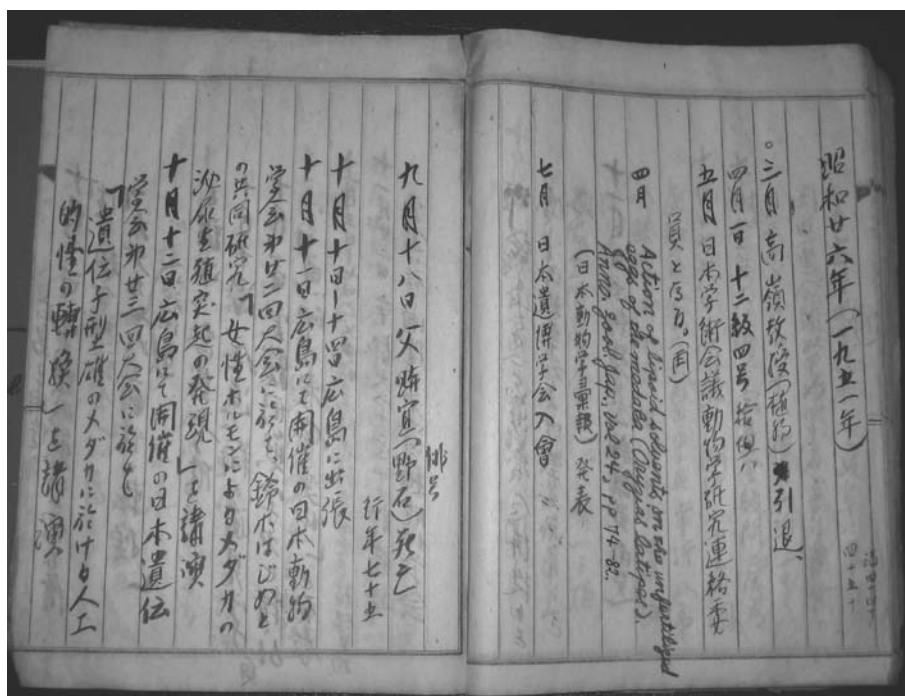 昭和廿六年(一九五一年)
満四十才
四十五才
○三月 高嶺教授(植物)引退、
四月一日 十二級四号 給俸
五月 日本学術会議動物学研究連絡委
員となる。
四月 Action of lipoid solvents on the unfertilized
eggs of the medaka (Oryzias latipes).
Annot. zool. Jap., vol 24, pp 74-82.
(日本動物学彙報)発表
七月 日本遺傳学会入會
俳号
九月十八日 父 (野石)死亡
行年七十五
十月十日-十四日広島に出張
十月十一日広島にて開催の日本動物
学会第廿二回大会に於て、鈴木はじめと
の共同研究「女性ホルモンによるメダカの
泌尿生殖突起の発現」を講演
十月十二日広島にて開催の日本遺伝
学会第廿三回大会に於ても
「遺伝子型雄のメダカに於ける人工
的性の轉換」を講演